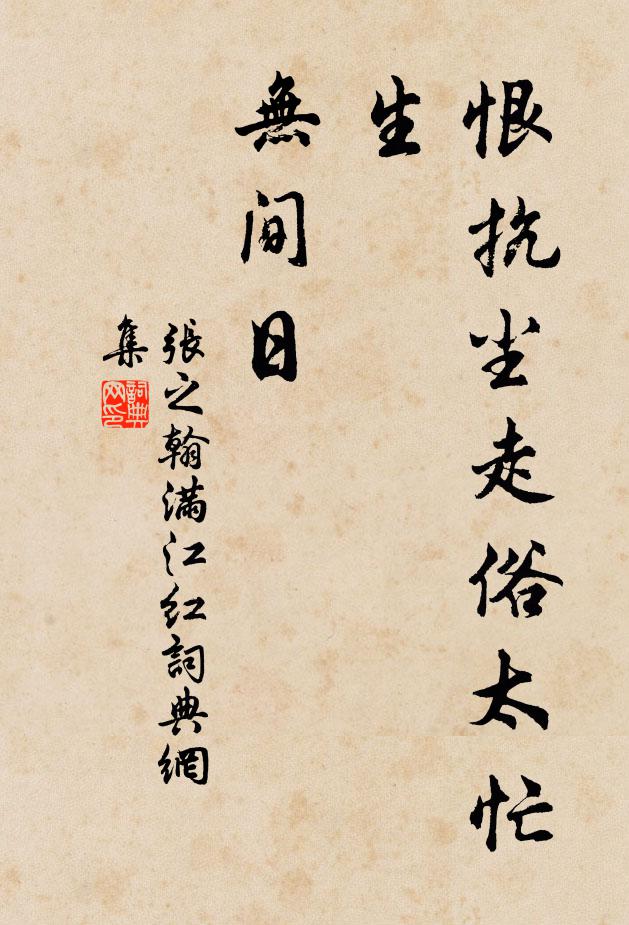 恨抗尘走俗太忙
生
無間日
張之翰满江红詞典網
集
詞典
网印